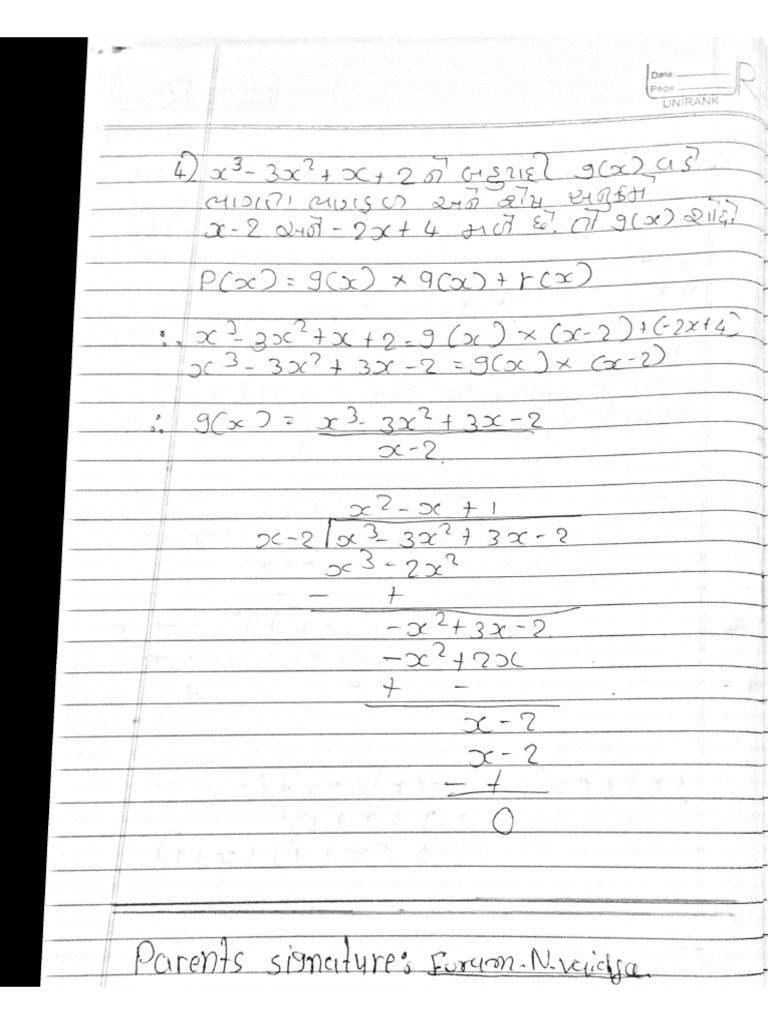 Date
Page
UNIRANK
R
4) x³ - 3x² + x + 2 ને બહુપદી g(x) વડે
ભાગતા ભાગફળ અને શેષ અનુક્રમે
x - 2 અને - 2x + 4 મળે છે. તો g(x) શોધો
P(x) = g(x) × q(x) + r(x)
∴ x³ - 3x² + x + 2 = g(x) × (x-2) + (-2x+4)
x³ - 3x² + 3x - 2 = g(x) × (x-2)
∴ g(x) = x³ - 3x² + 3x - 2
x - 2
x² - x + 1
x-2 | x³ - 3x² + 3x - 2
x³ - 2x²
- +
-x² + 3x - 2
-x² + 2x
+ -
x - 2
x - 2
- +
0
Parents signature: